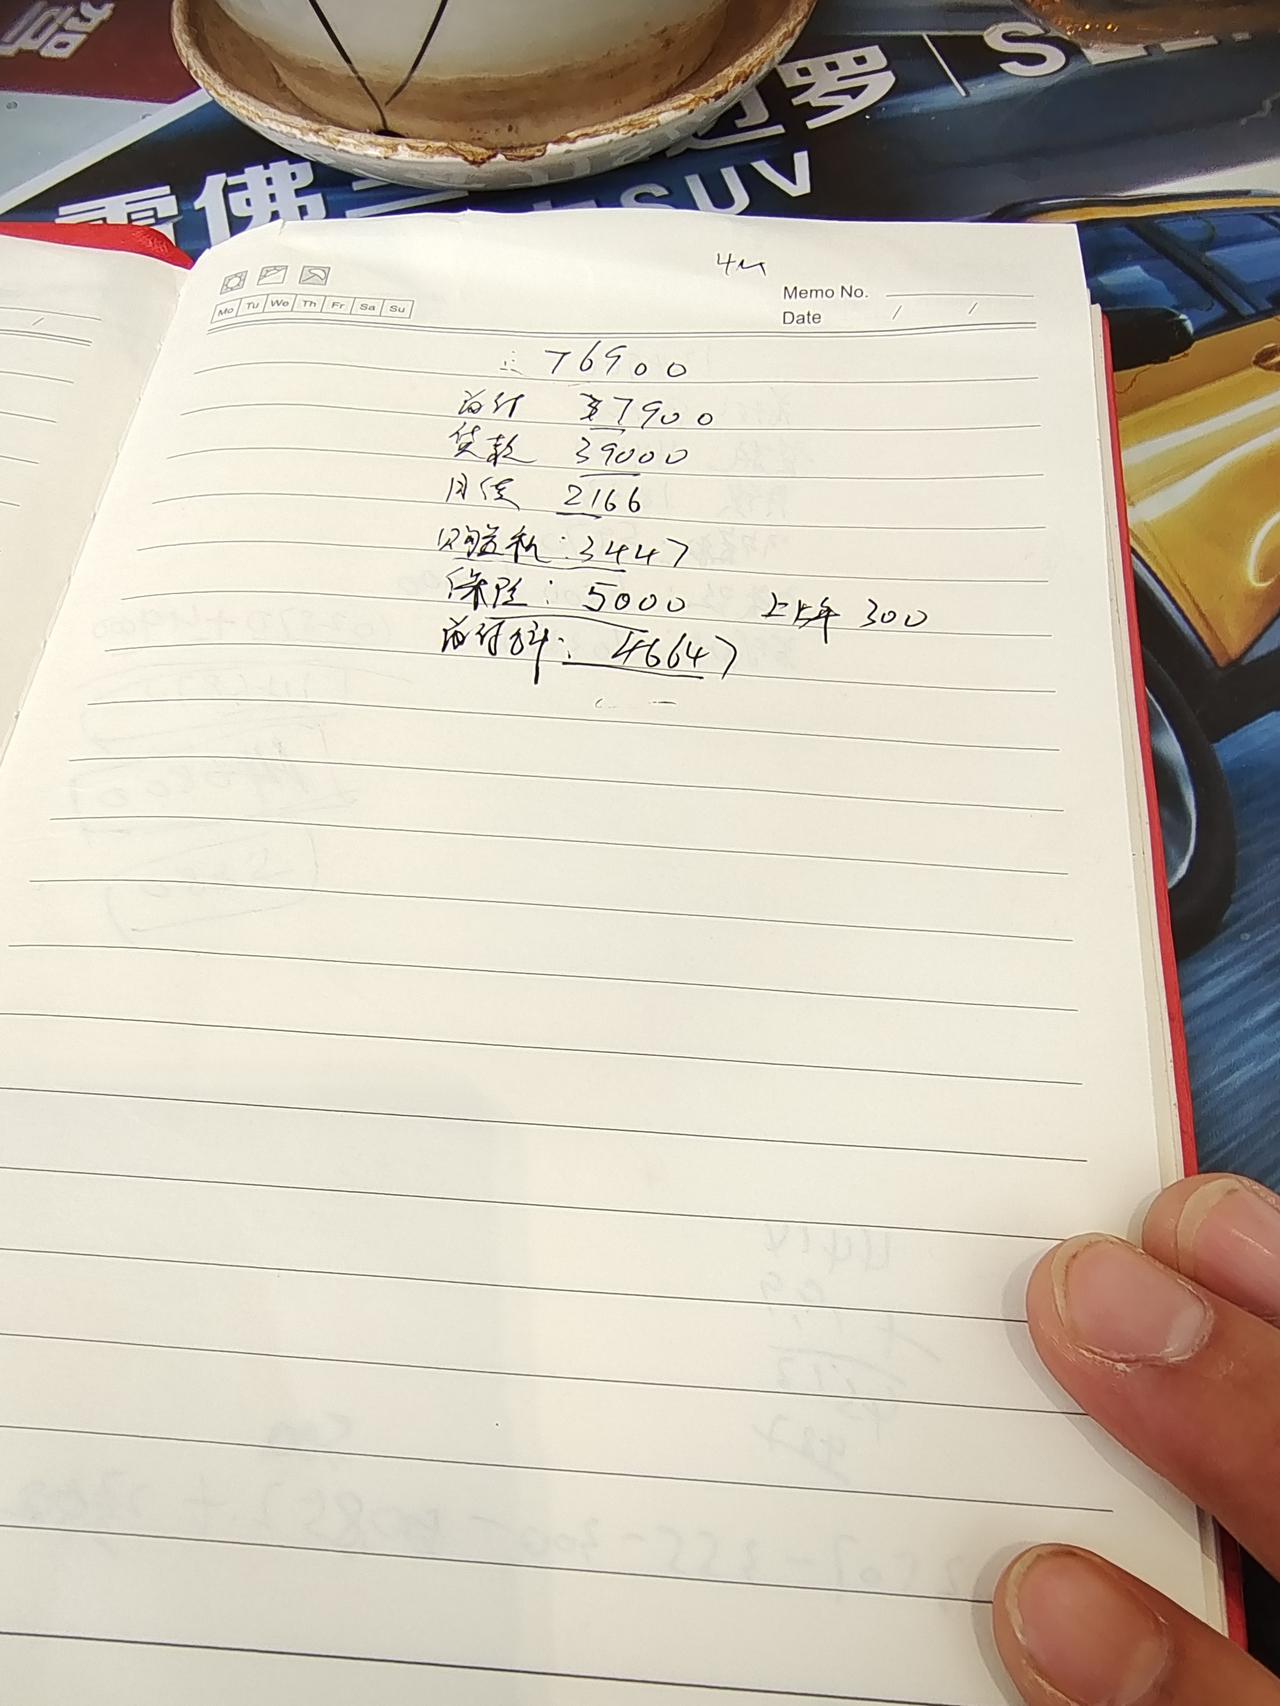 雪佛兰 迈罗 | SEE
SUV
4M
Memo No.
Mo Tu We Th Fr Sa Su
Date / /
76900
首付 37900
贷款 39000
月供 2166
购置税:3447
保险:5000 上牌 300
首付合计:46647